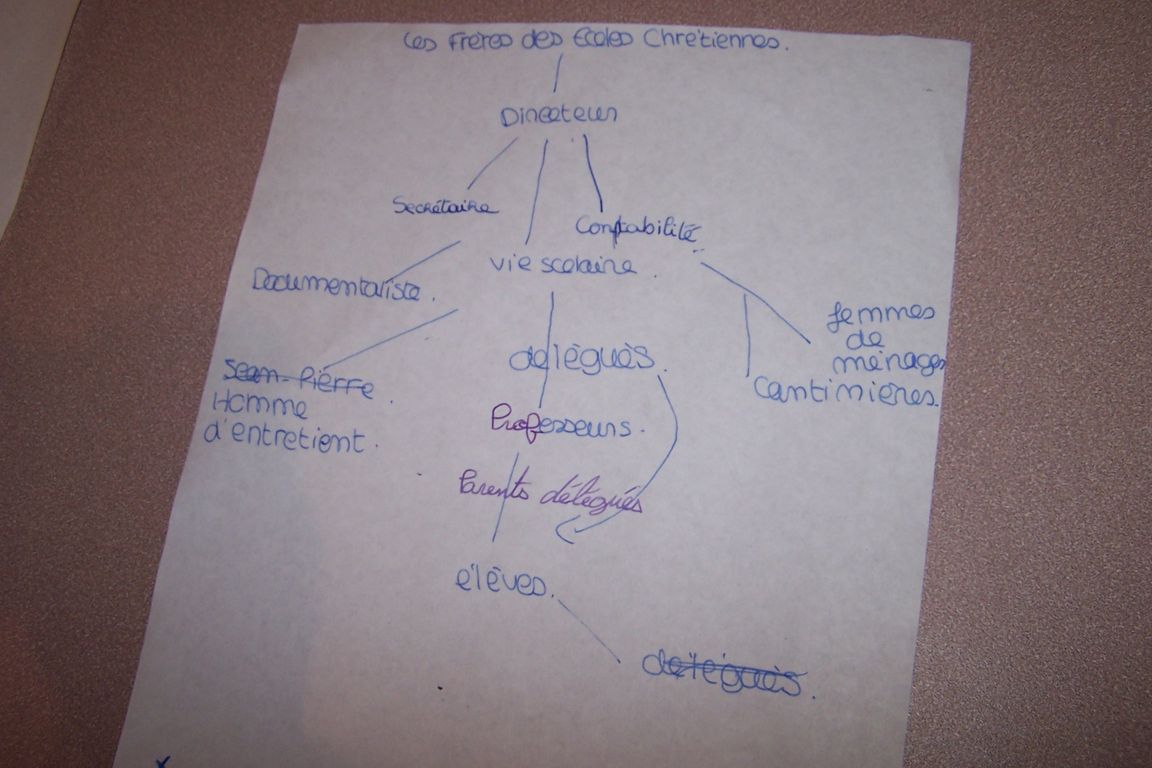 Les Frères des Écoles Chrétiennes.
Directeur
Secrétaire
Comptabilité
vie scolaire.
Documentaliste.
femmes
de
ménages
délégués.
Jean-Pierre.
Homme
d'entretient.
Cantinières.
Professeurs.
Parents délégués
élèves.
délégués.